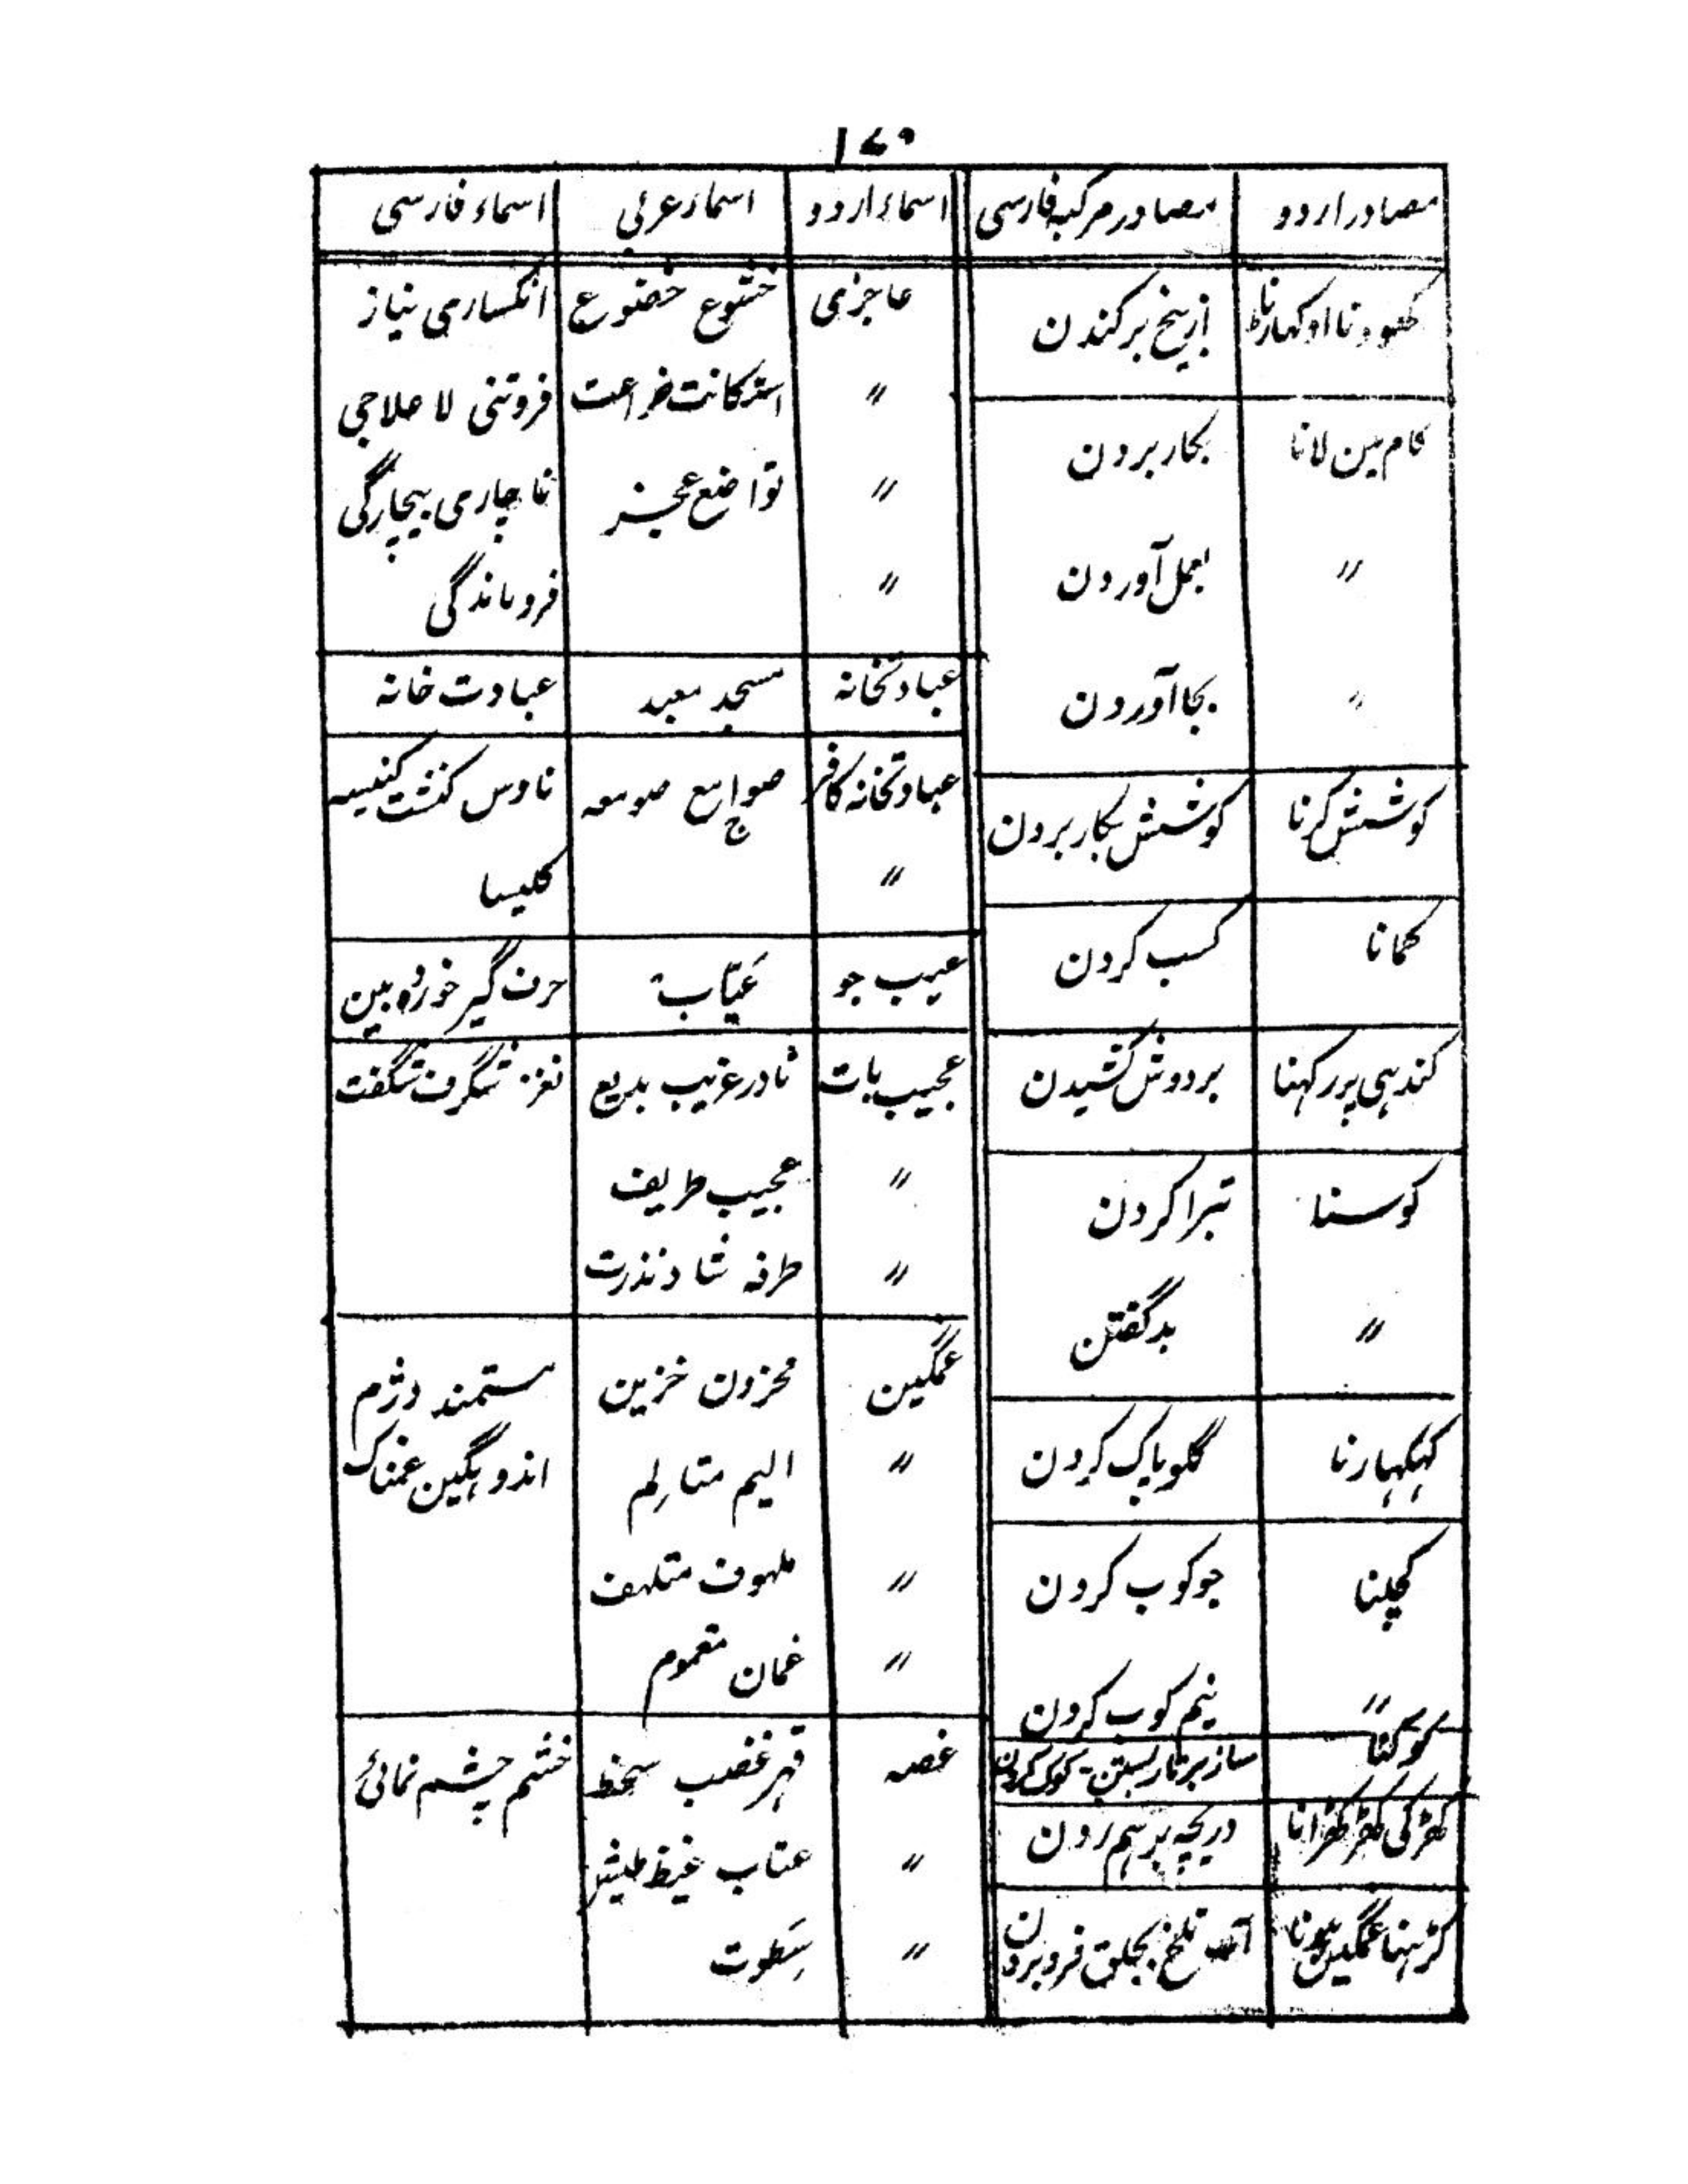 ۱۷۰
مصادر اردو | مصادر مرکبہ فارسی | اسماء اردو | اسماء عربی | اسماء فارسی
کھودنا اوکھاڑنا | از بیخ برکندن
کام مین لانا | بکار بردن
〃 | بعمل آوردن
〃 | بجا آوردن
کوشش کرنا | کوشش بکار بردن
کمانا | کسب کردن
کندہی پر رکہنا | بردوش کشیدن
کوسنا | تبرا کردن
〃 | بد گفتن
کہکہارنا | گلو پاک کردن
کچلنا | جوکوب کردن
〃 | نیم کوب کردن
کوکنا | ساز بر تار بستن - کوک کردن
کھڑکی کھڑکھڑانا | دریچہ برہم زدن
کڑہنا غمگین ہونا | تلخ بحلق فرو بردن
عاجزی | خشوع خضوع | انکساری نیاز
〃 | استکانت ضراعت | فروتنی لاعلاجی
〃 | تواضع عجز | ناچاری بیچارگی
〃 | | فروماندگی
عبادتخانہ | مسجد معبد | عبادت خانہ
عبادتخانہ کافر | صوامع ج صومعہ | ناوس کنشت کنیسہ
〃 | | کلیسا
عیب جو | عَیّاب | حرف گیر خوردہ بین
عجیب بات | نادر غریب بدیع | نغز شگرف شگفت
〃 | عجیب طریف
〃 | طرفہ شاذ ندرت
غمگین | محزون حزین | مستمند دژم
〃 | الیم متالم | اندوہگین غمناک
〃 | ملہوف متلہف
〃 | غمان مغموم
غصہ | قہر غضب سخط | خشم چشم نمائی
〃 | عتاب غیظ طیش
〃 | سَطوت